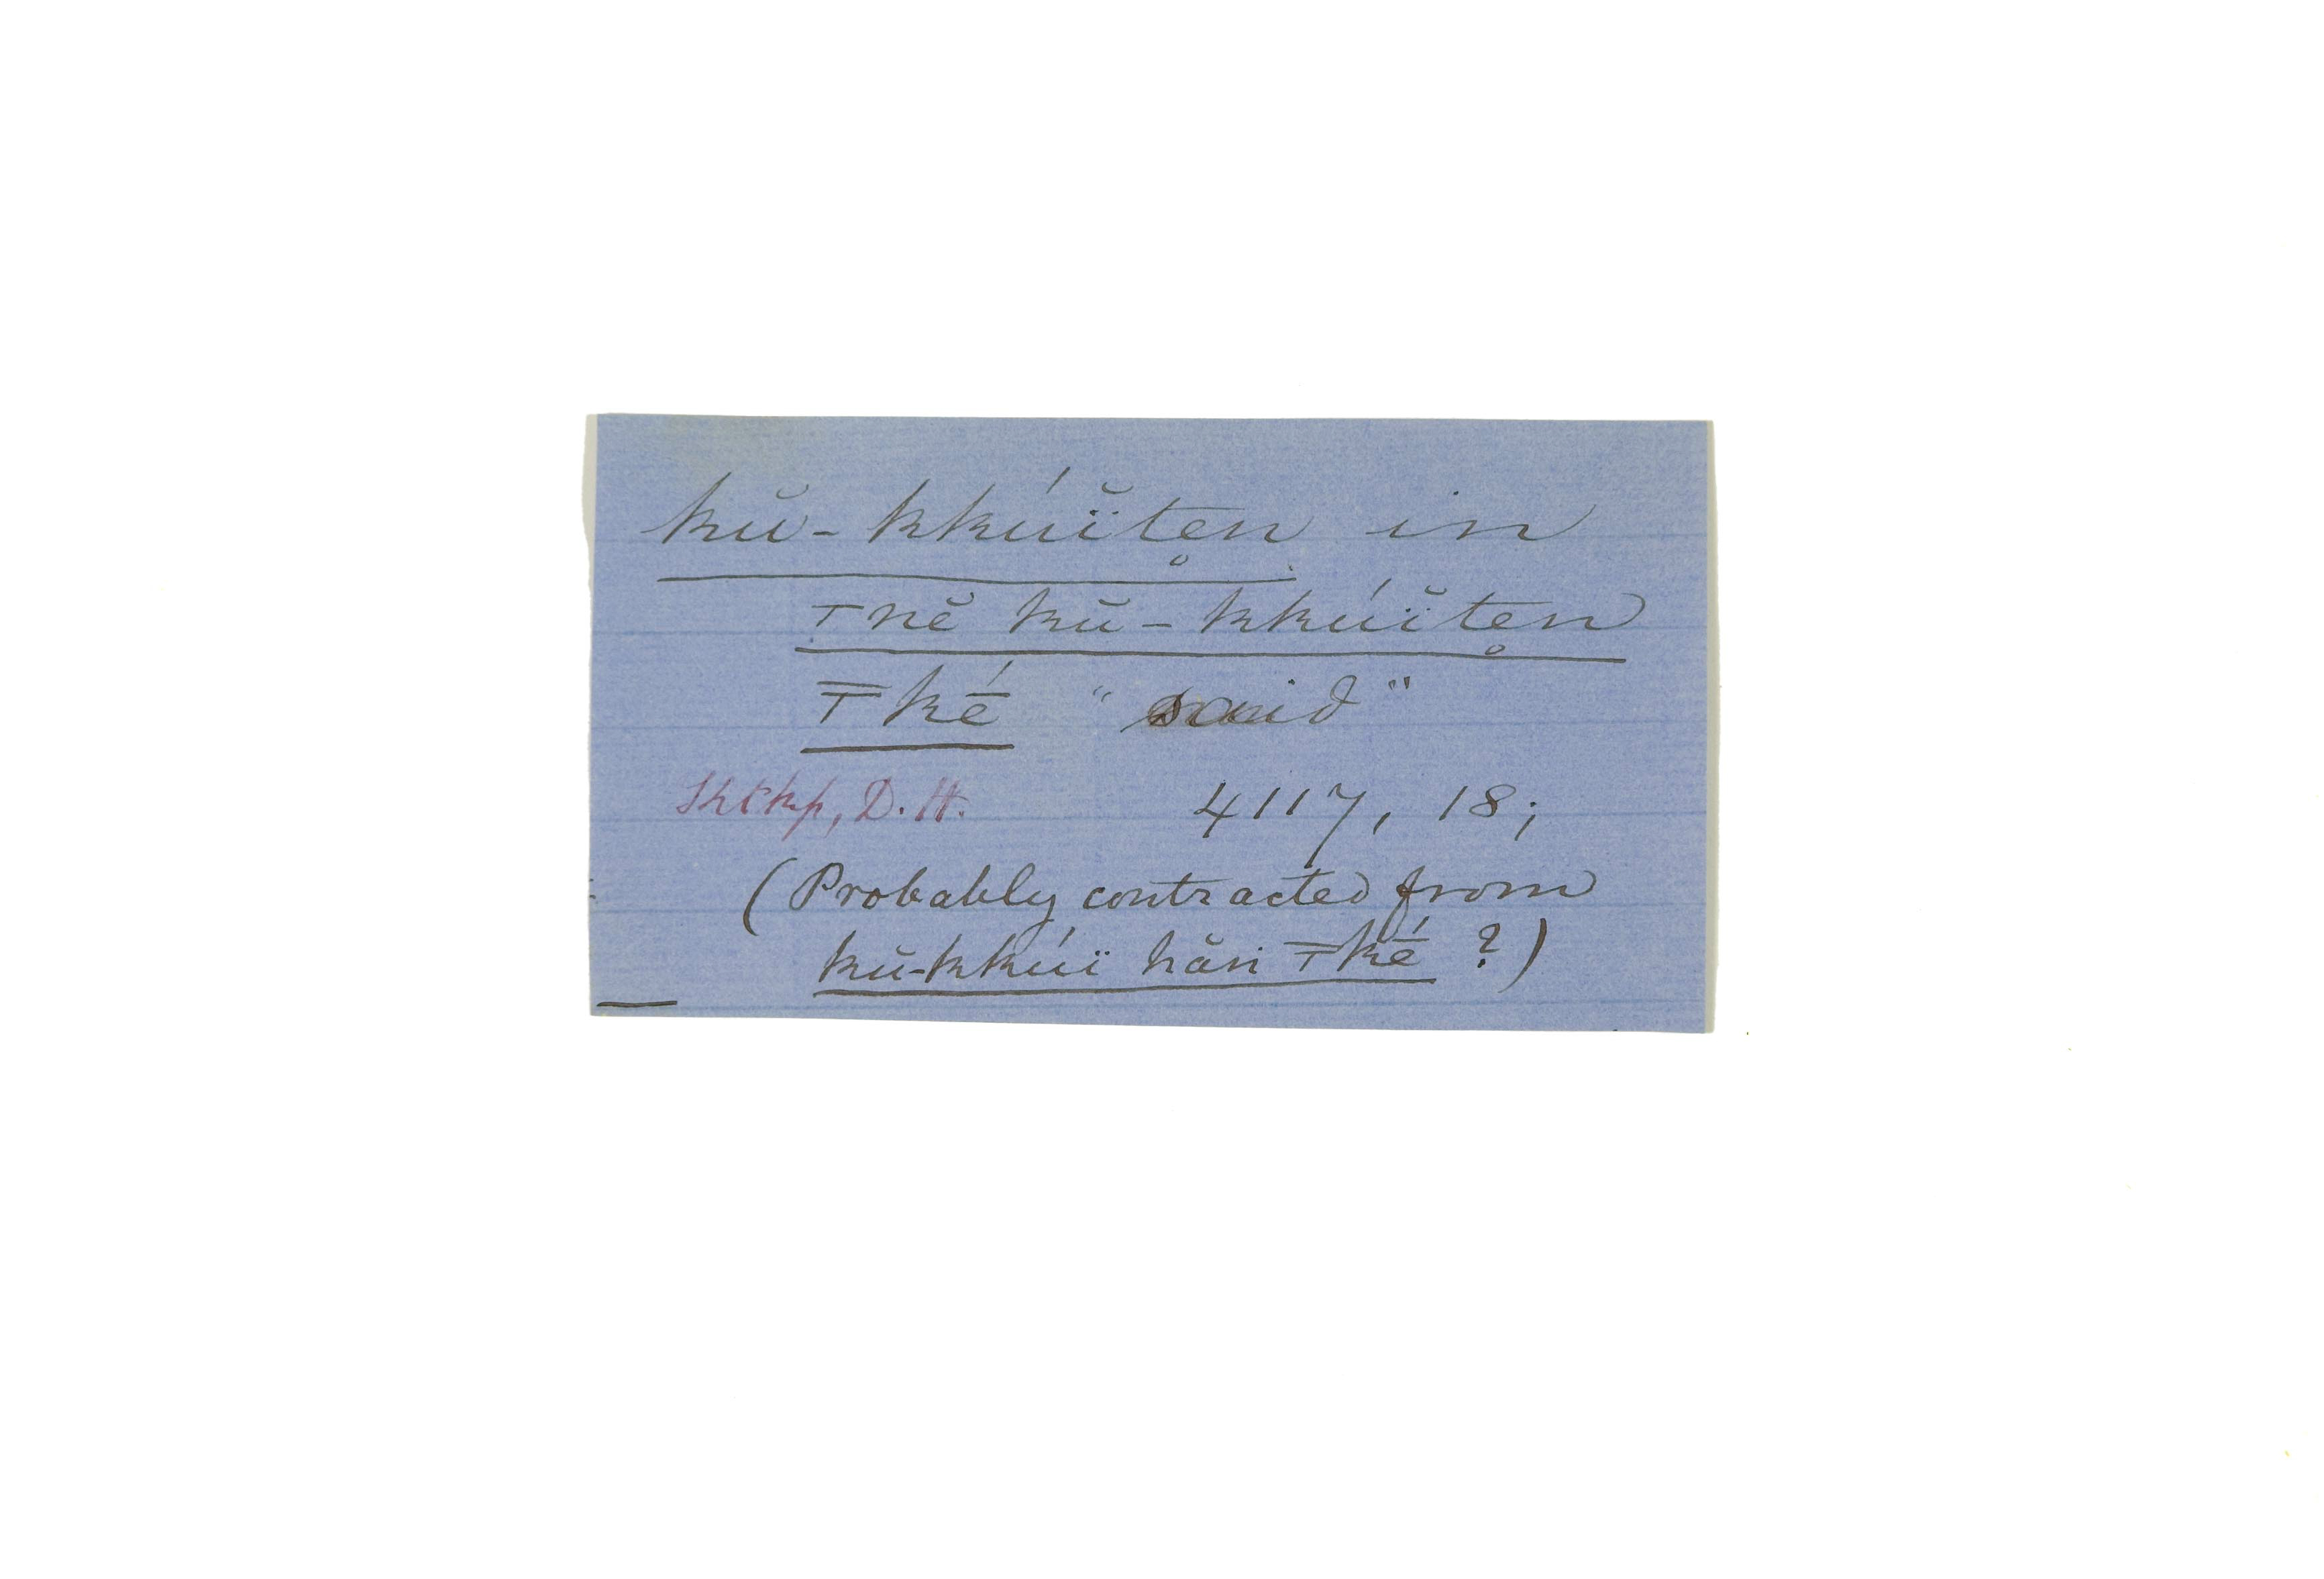 kŭ-kkúï̆tẹn in
⊤nĕ kŭ-kkúï̆tẹn
⊤̅ké̱ "said"
D.H. 4117, 18;
(Probably contracted from
kŭ-kkúï hăn ⊤̅ké̱ ?)